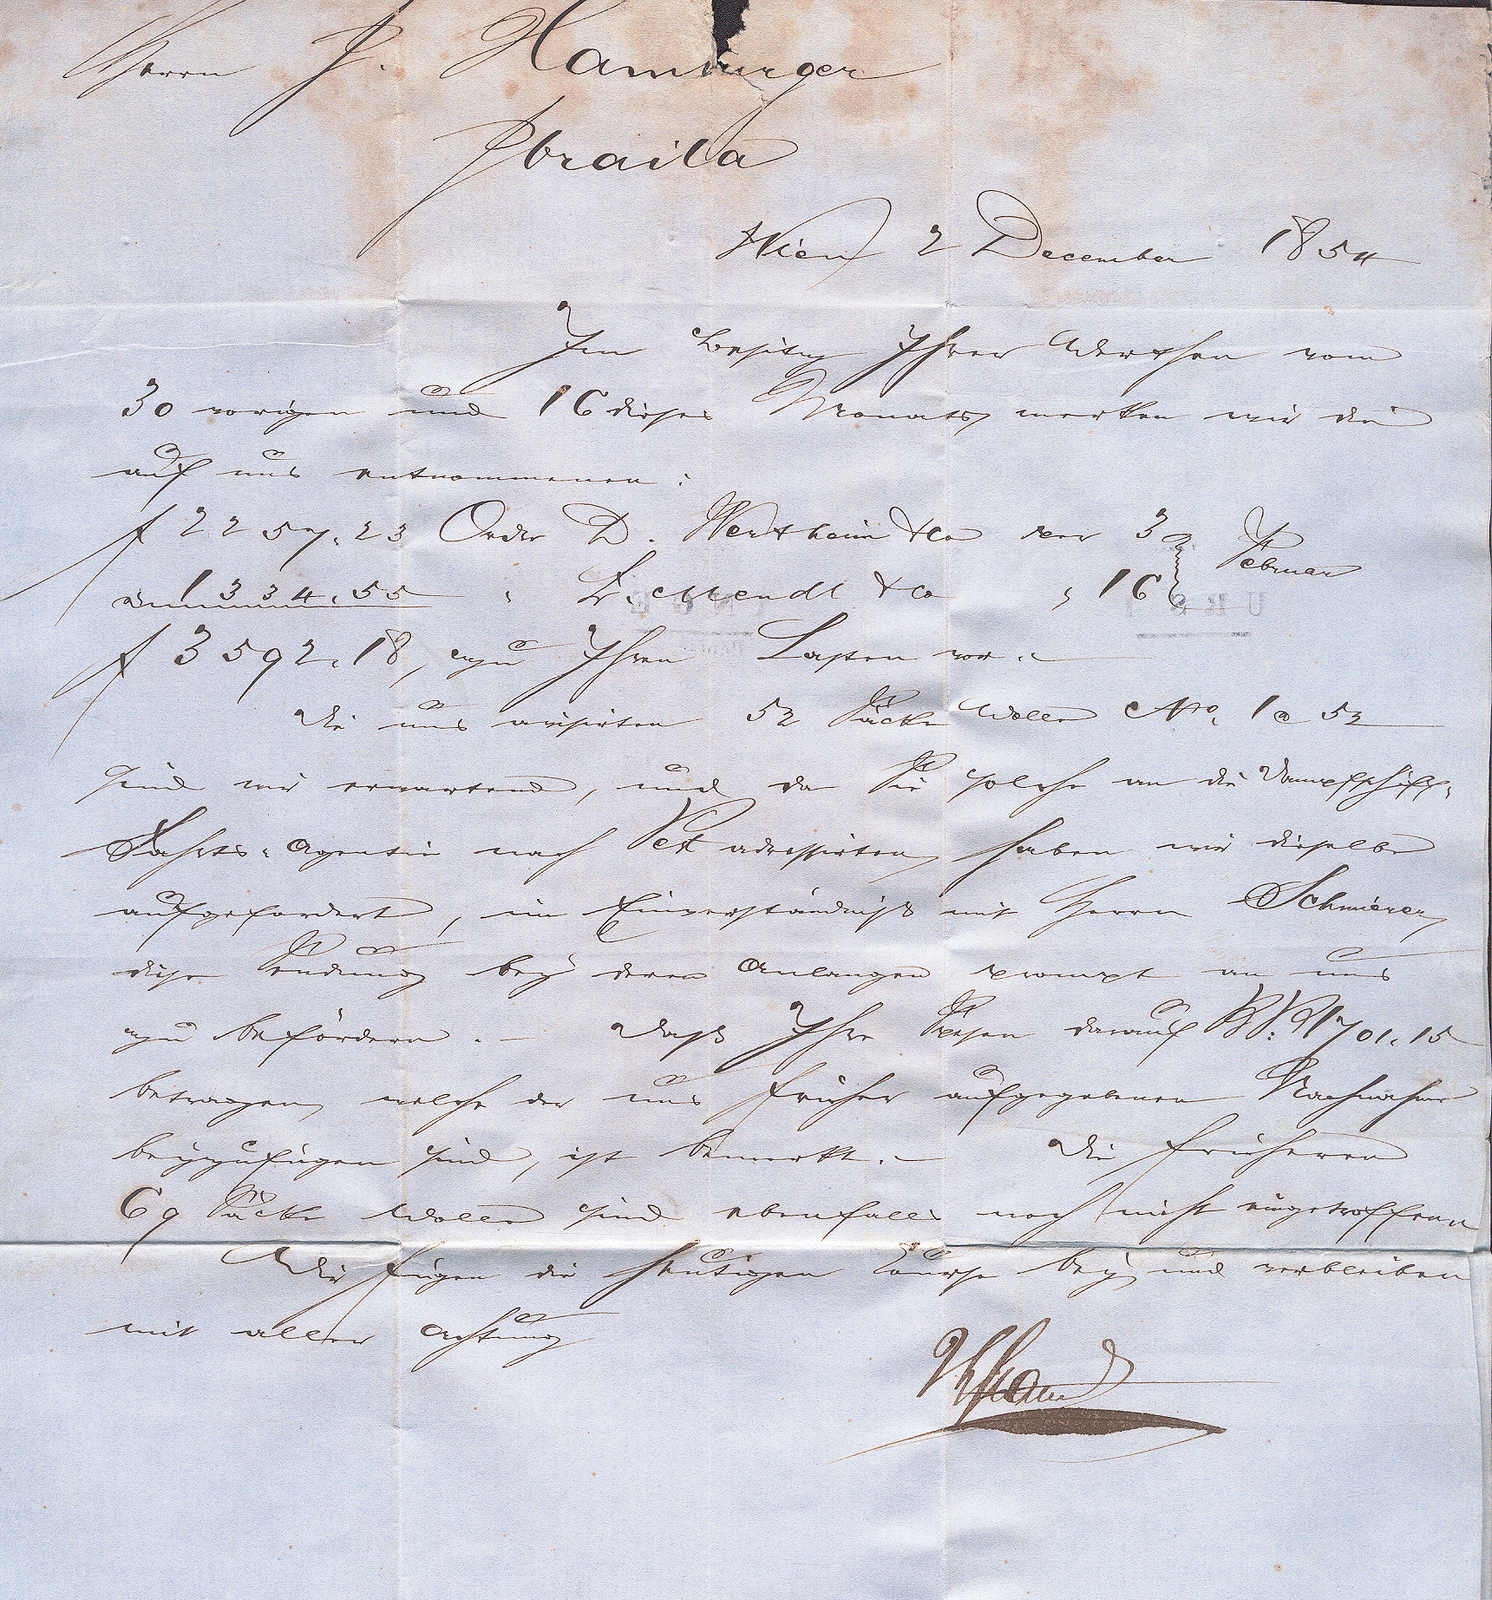 Herrn J. Hamburger
Ibraila
Wien 2 December 1854
Im Besitze Ihrer Werthen vom
30 vorigen und 16 dieses Monats, merken wir die
auf uns entnommenen:
f 2257.23 Order D. Wertheim & Co per 3
1334.55 " L. Mendl & Co " 16 Februar
f 3592.18, zu Ihren Lasten vor.
Die uns avisirten 52 Säcke Wolle No. 1 a 52
sind wir erwartend, und da Sie solche an die Dampfschiff-
Fahrts-Agentie nach Pest adressirten, haben wir dieselbe
aufgefordert, im Einverständniß mit Herrn Schmierer,
diese Sendung bey deren Anlangen prompt an uns
zu befördern. – Daß Ihre Spesen darauf 1701.15
betragen, welche der uns früher aufgegebenen Nachnahme
beyzufügen sind, ist bemerkt. – Die früheren
69 Säcke Wolle sind ebenfalls noch nicht eingetroffen
Wir fügen die heutigen Course bey und verbleiben
mit aller Achtung